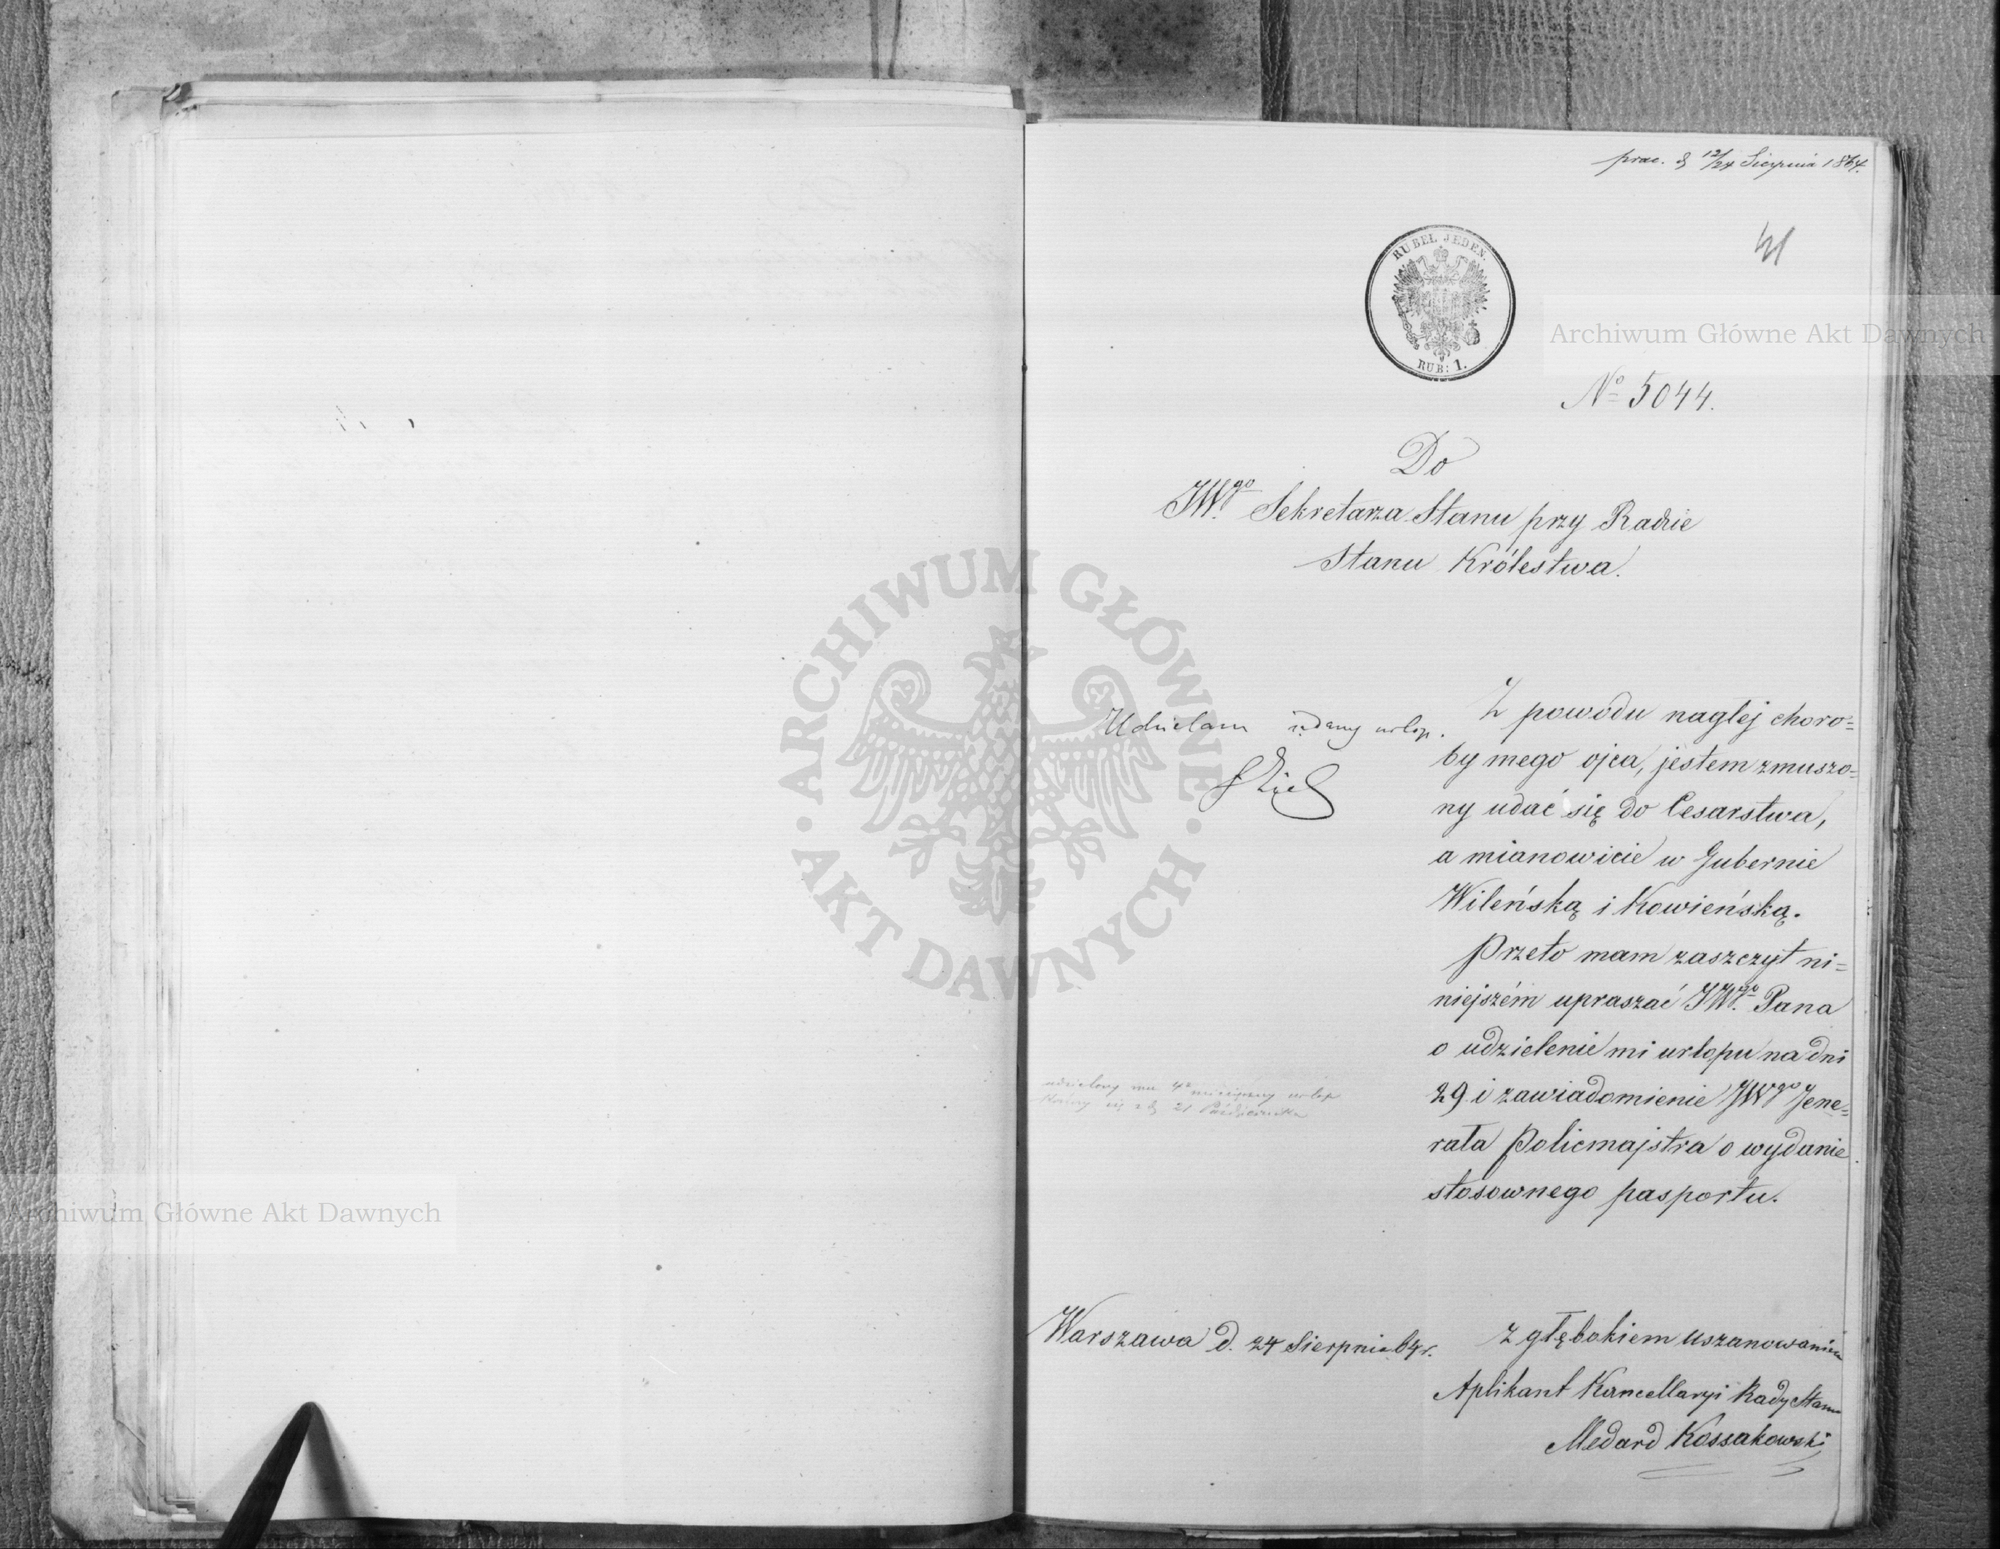 prae. d 12/24 Sierpnia 1864.
41
RUBEL JEDEN.
RUB: 1.
Archiwum Główne Akt Dawnych
No 5044.
Do
JWgo Sekretarza Stanu przy Radzie
Stanu Królestwa.
Udzielam żądany urlop.
Z powodu nagłej choro=
by mego ojca, jestem zmuszo=
ny udać się do Cesarstwa,
a mianowicie w Gubernie
Wileńską i Kowieńską.
Przeto mam zaszczyt ni=
niejszém upraszać JWgo Pana
o udzielenie mi urlopu na dni
29 i zawiadomienie JWgo Jene=
rała Policmajstra o wydanie
stosownego pasportu.
udzielony mu miesięczny urlop
kończy się z d 21 Października
Warszawa d. 24 Sierpnia 64 r.
z głębokiem uszanowaniem
Aplikant Kancellaryi Rady Stanu
Medard Kossakowski
ARCHIWUM GŁÓWNE
AKT DAWNYCH
Archiwum Główne Akt Dawnych